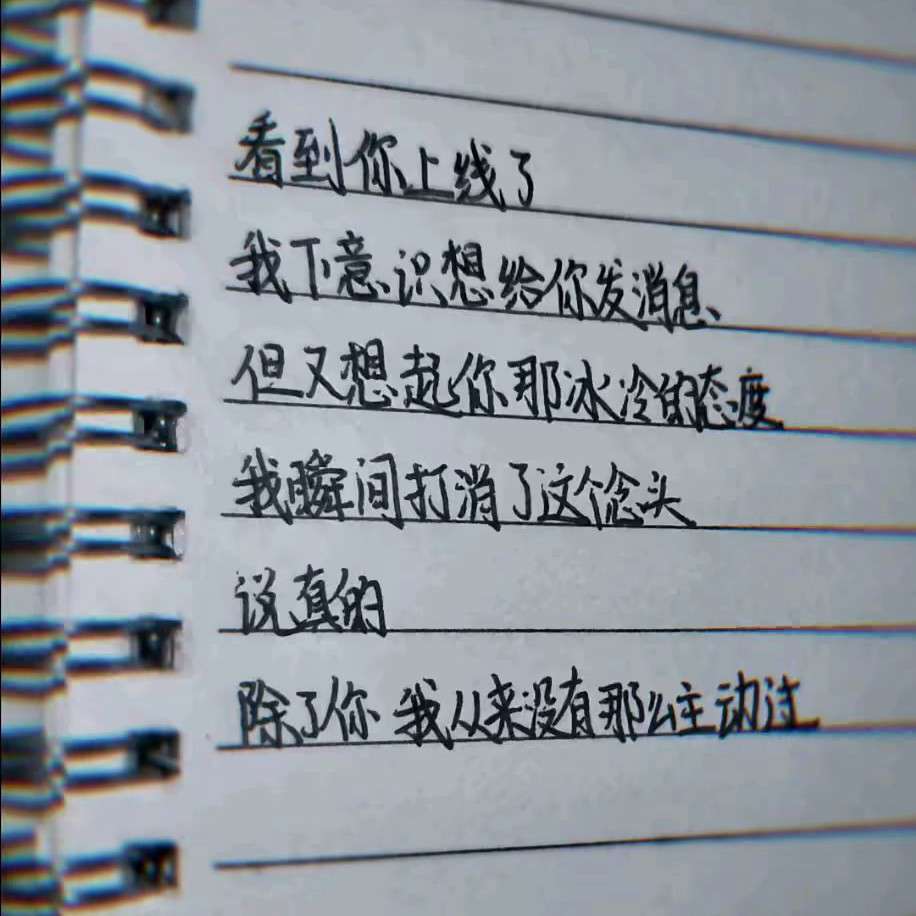 看到你上线了
我下意识想给你发消息
但又想起你那冰冷的态度
我瞬间打消了这个念头
说真的
除了你 我从来没有那么主动过